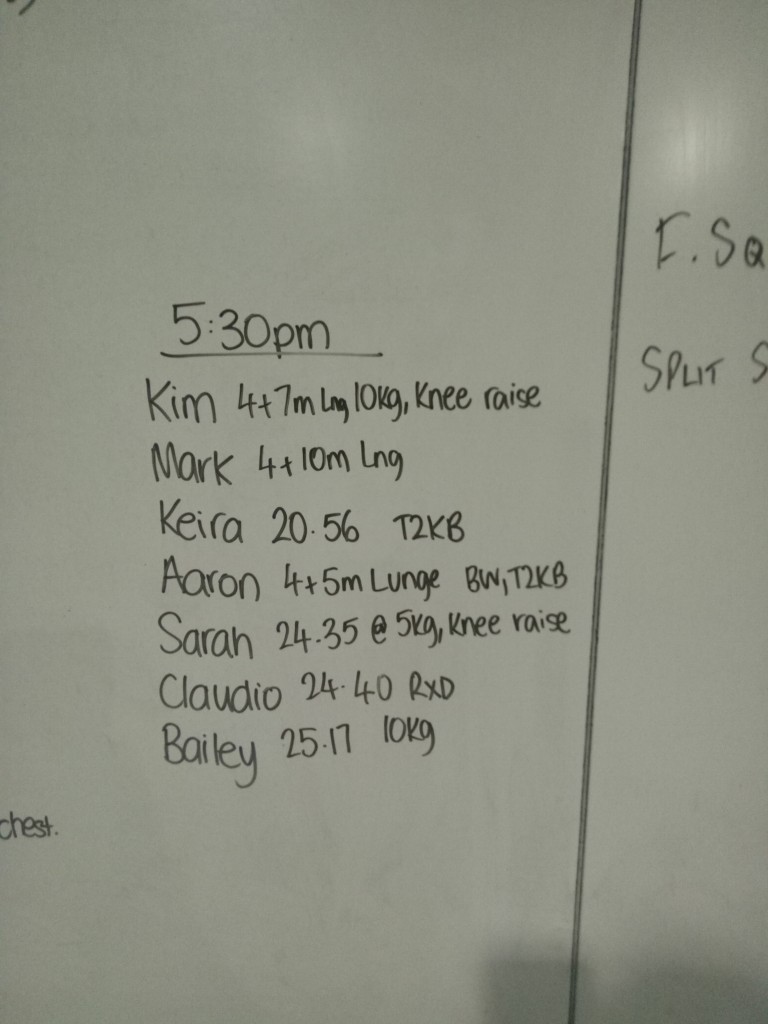 5:30pm
Kim 4+7m Lng 10kg, Knee raise
Mark 4+10m Lng
Keira 20.56 T2KB
Aaron 4+5m Lunge BW, T2KB
Sarah 24.35 @ 5kg, Knee raise
Claudio 24.40 RXD
Bailey 25.17 10kg
chest.
F. SQ
SPLIT S